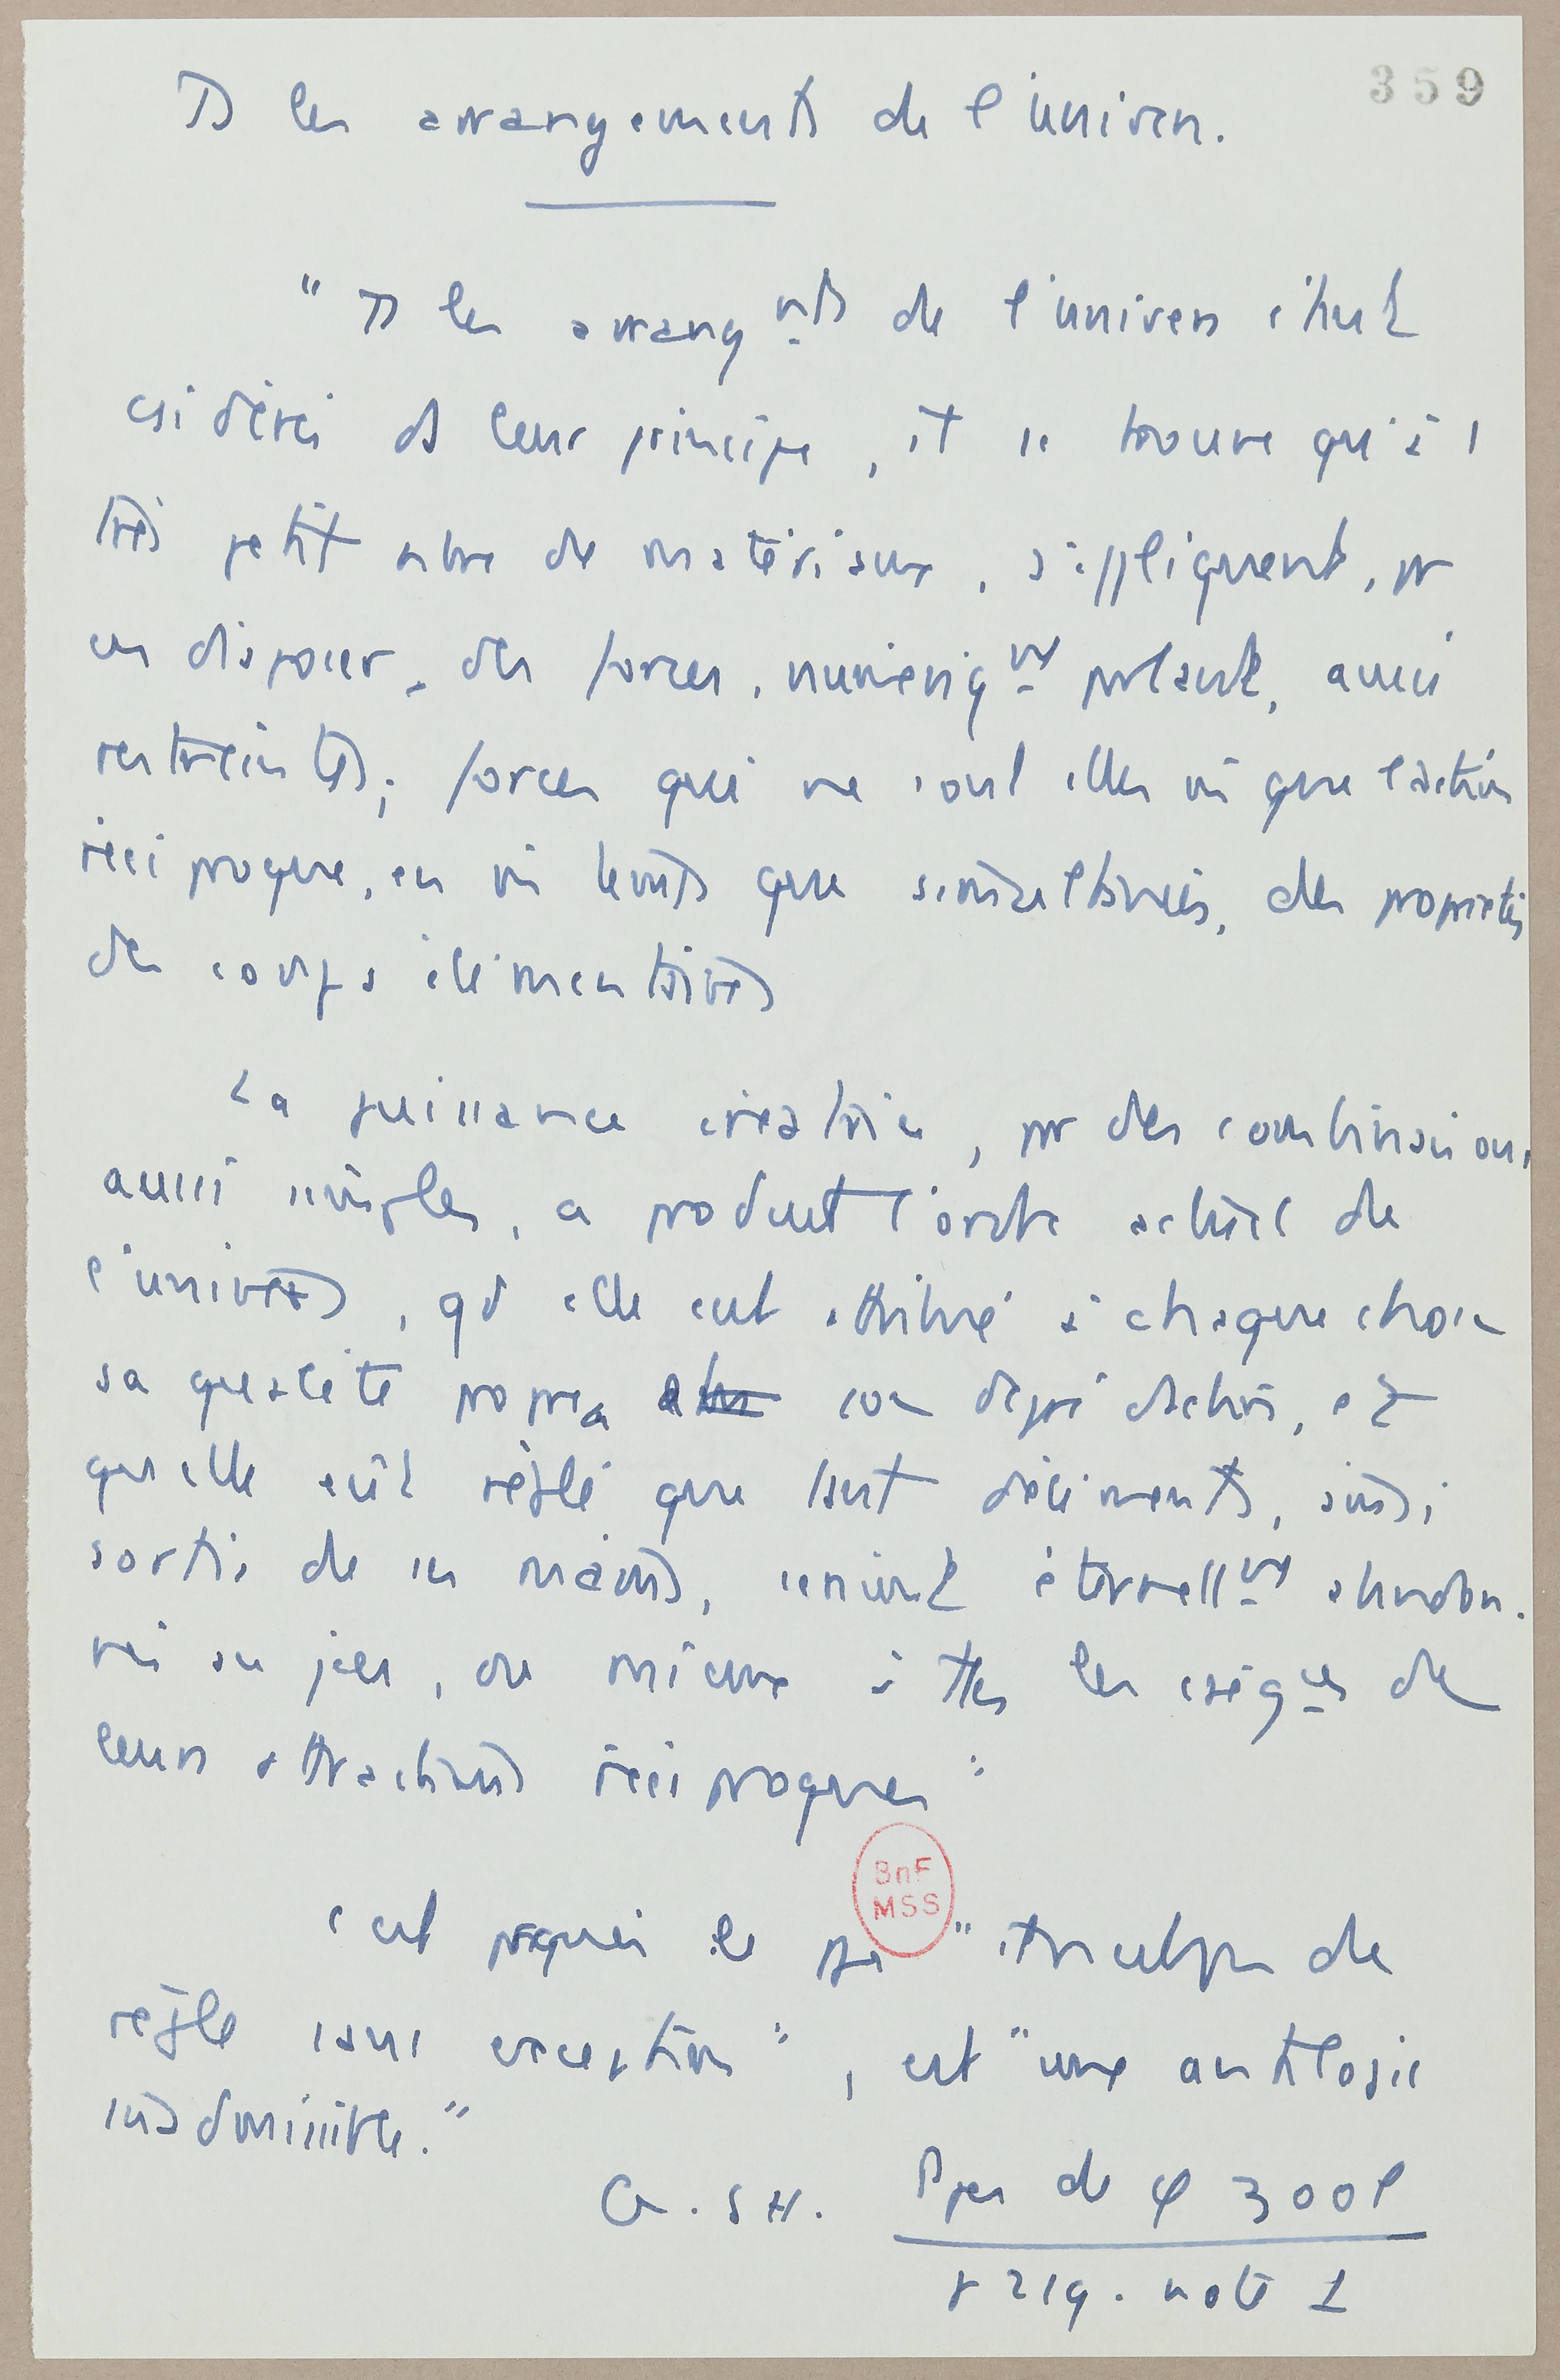 359
Ts les arrangements de l'univers.
"Ts les arrangnts de l'univers étant
csidérés ds leur principe, il se trouve qu'à 1
très petit nbre de matériaux, s'appliquent, pr
en disposer, des forces, numériqnt parlant, aussi
restreintes; forces qui ne sont elles mi que l'action
réciproque, en mi temps que simultanée, des propriétés
des corps élémentaires
La puissance créatrice, par des combinaisons
aussi simples, a produit l'ordre actuel de
l'univers, qd elle eut attribué à chaque chose
sa qualité propre son degré d'action, et
qu'elle eût réglé que tant d'éléments, ainsi
sortis de ses mains, seraient éternellnt abandon.
nés au jeu, ou mieux à ttes les cséqces de
leurs attractions réciproques"
c'est pqquoi le "de
règle sans exception", est "une antilogie
inadmissible."
G. S H. Ppes de φ zool
p 219. note 1
BnF
MSS